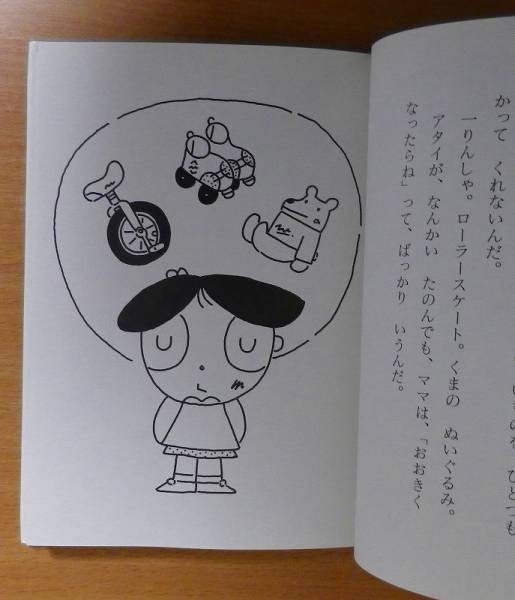 ひとつも
かって くれないんだ。
一りんしゃ。ローラースケート。くまの ぬいぐるみ。
アタイが、なんかい たのんでも、ママは、「おおきく
なったらね」って、ばっかり いうんだ。